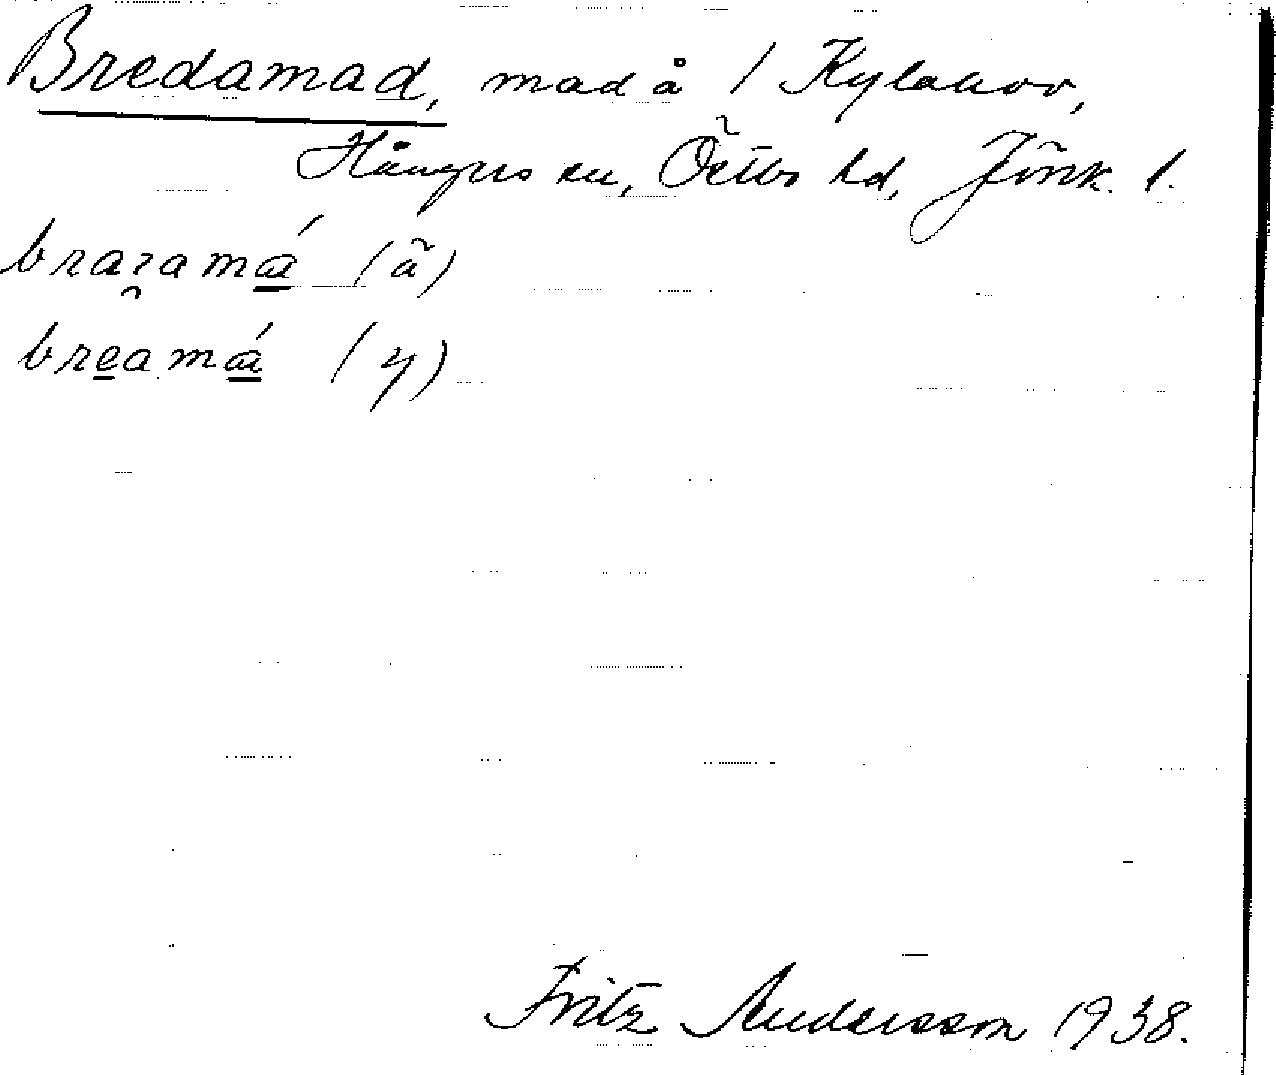 Bredamad, mad å / Kylahov,
Hångers sn, Östbo hd, Jönk. l.
braɿamá (ä)
breamá (y)
Fritz Andersson 1938.